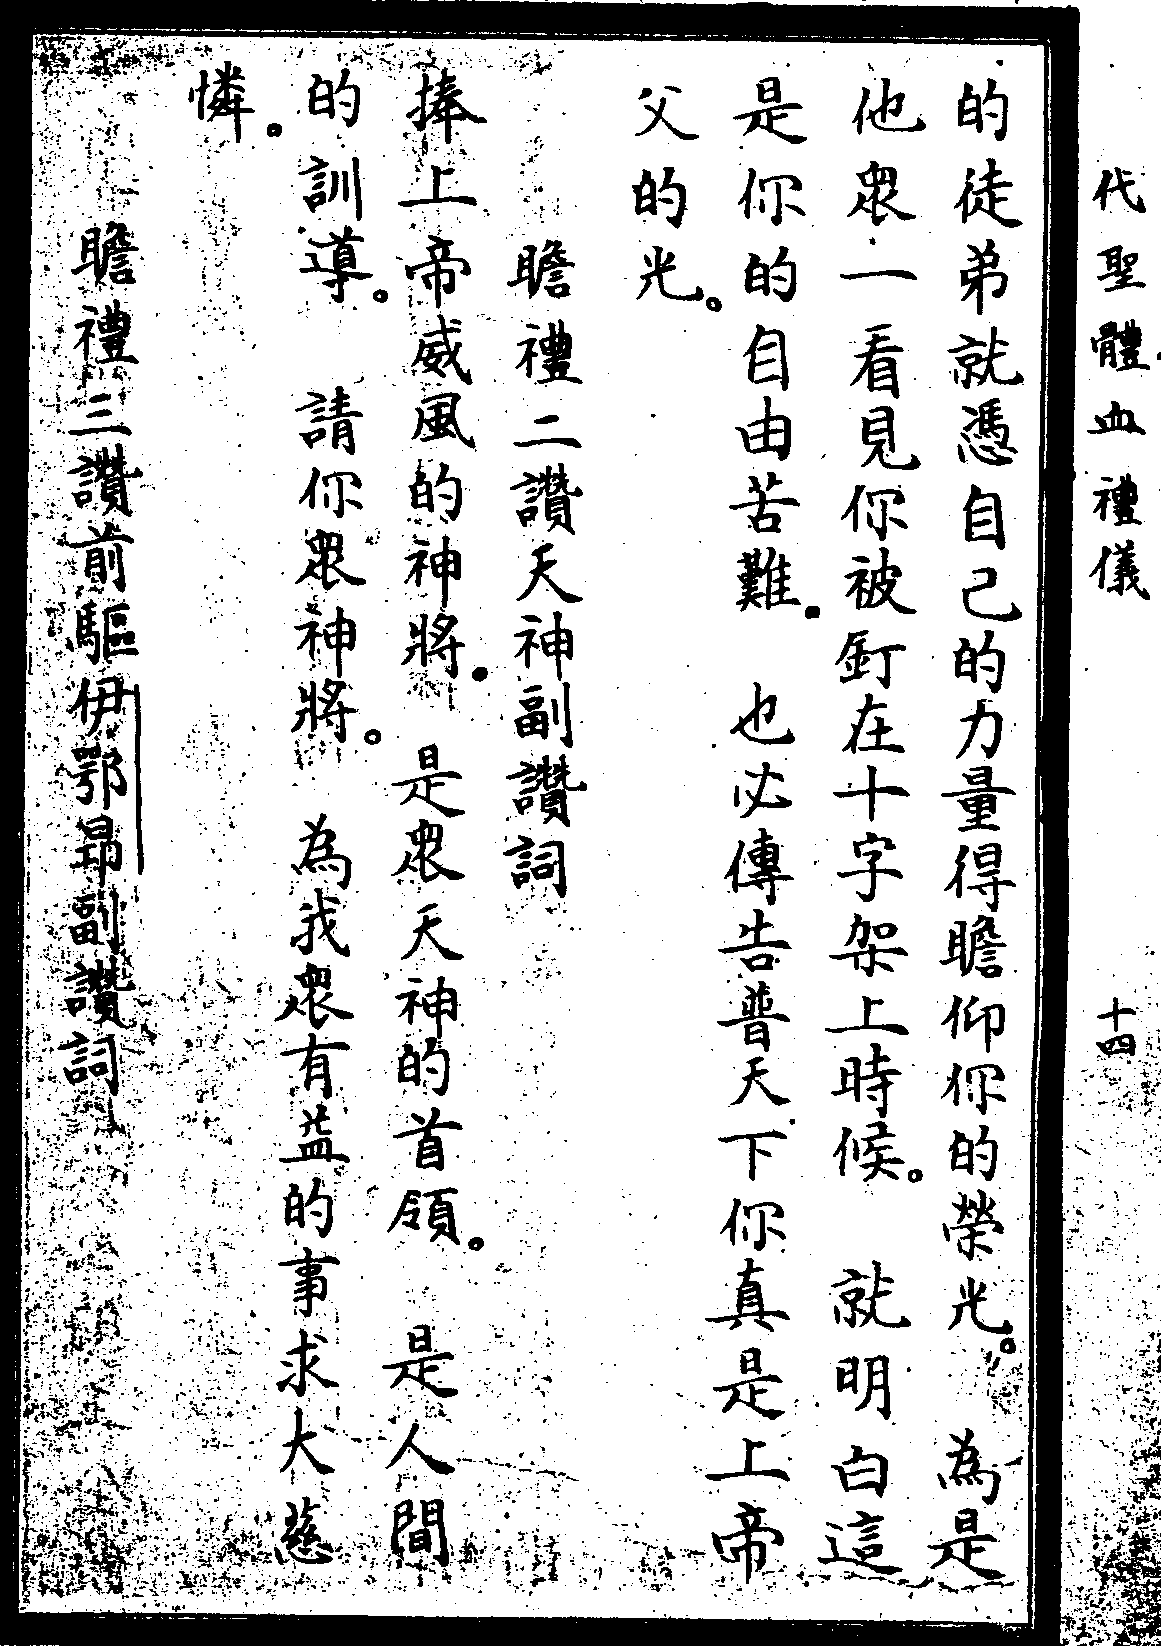 代聖體血禮儀 十四
的徒弟就憑自己的力量得瞻仰你的榮光。為是
他眾一看見你被釘在十字架上時候。就明白這
是你的自由苦難．也必傳告普天下你真是上帝
父的光。
瞻禮二讚天神副讚詞
捧上帝威風的神將．是眾天神的首領。是人間
的訓導。請你眾神將。為我眾有益的事求大慈
憐．
瞻禮三讚前驅伊鄂昻副讚詞